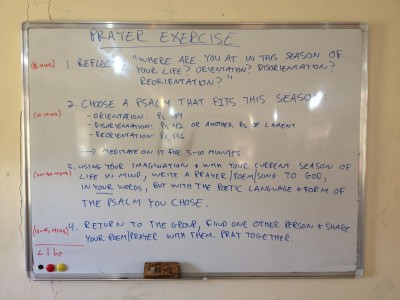 PRAYER EXERCISE
(5 MINS) 1. REFLECT: "WHERE ARE YOU AT IN THIS SEASON OF
YOUR LIFE? ORIENTATION? DISORIENTATION?
REORIENTATION?"
(10 MINS) 2. CHOOSE A PSALM THAT FITS THIS SEASON:
- ORIENTATION: PS
- DISORIENTATION: PS 42 OR ANOTHER PS OF LAMENT
- REORIENTATION: PS 136
→ MEDITATE ON IT FOR 5-10 MINUTES
MINS) 3. USING YOUR IMAGINATION + WITH YOUR CURRENT SEASON
OF LIFE IN MIND, WRITE A PRAYER/POEM/SONG TO GOD,
IN YOUR WORDS, BUT WITH THE POETIC LANGUAGE + FORM OF
THE PSALM YOU CHOSE.
(10-15 MINS) 4. RETURN TO THE GROUP, FIND ONE OTHER PERSON + SHARE
YOUR POEM/PRAYER WITH THEM. PRAY TOGETHER.
< 1 hr